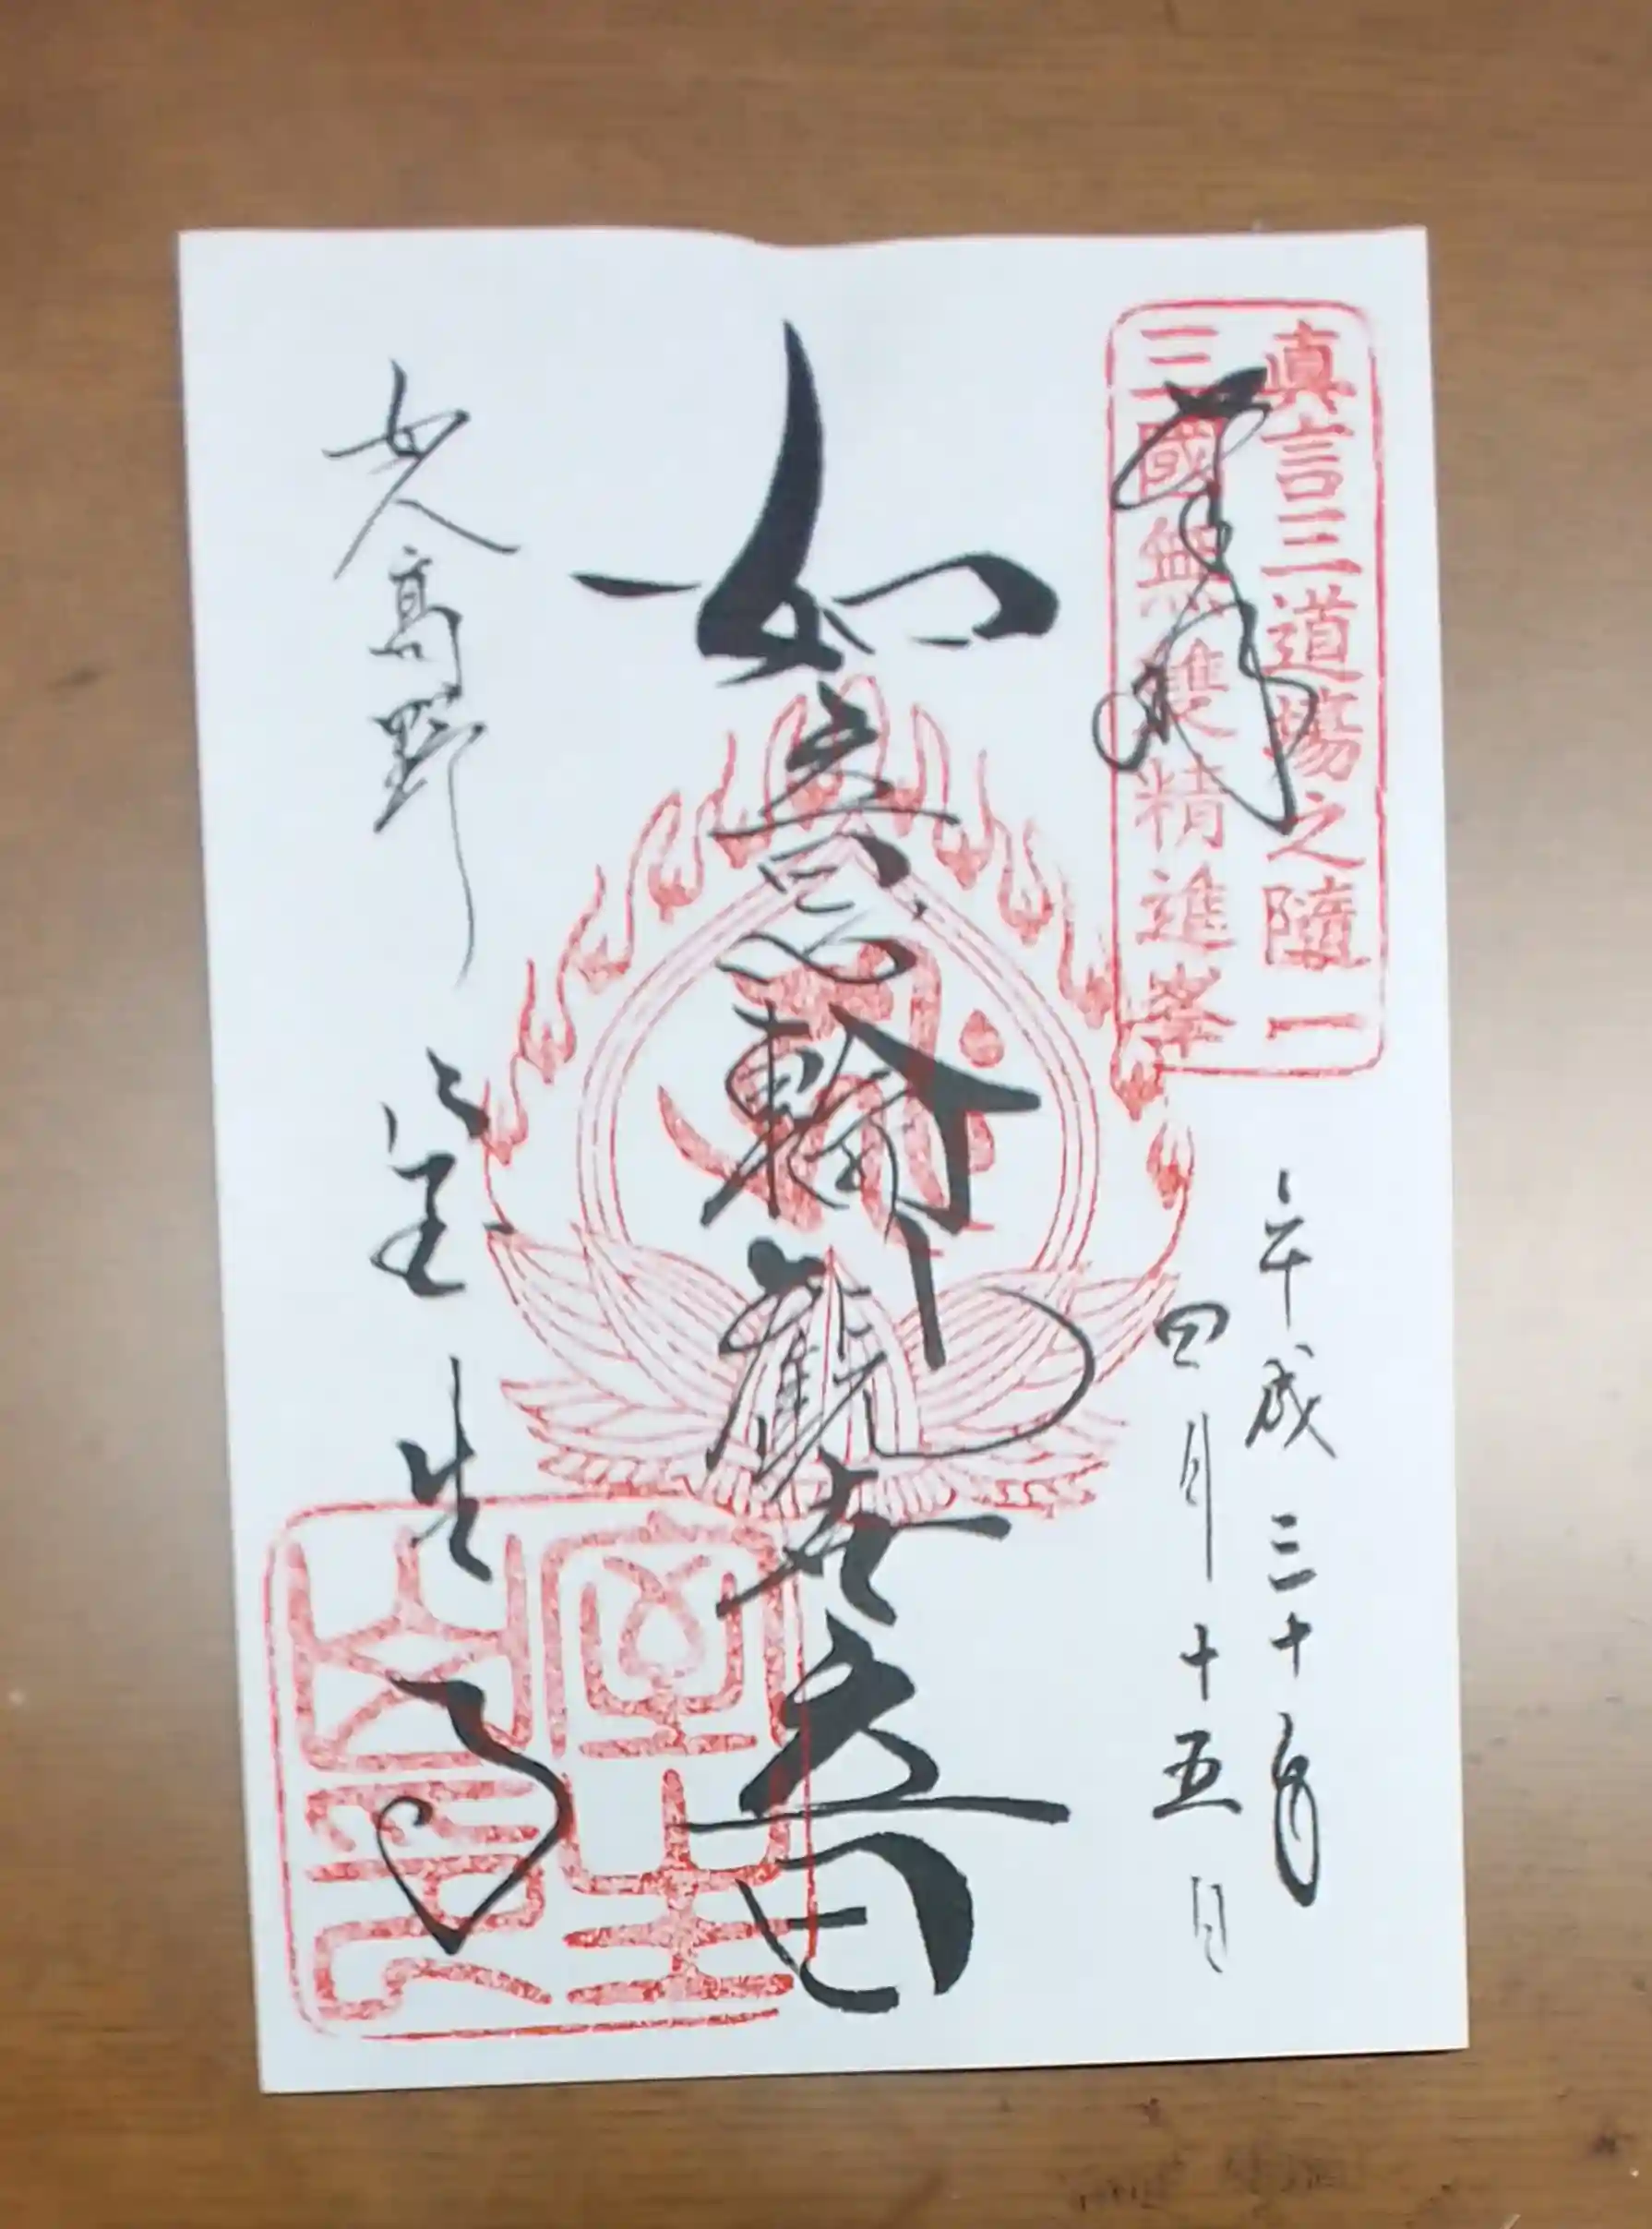 真言三道場之随一
三國無雙精進峯
奉拝
平成三十年
四月十五日
如意輪觀世音
女人高野
室生寺
室生山印